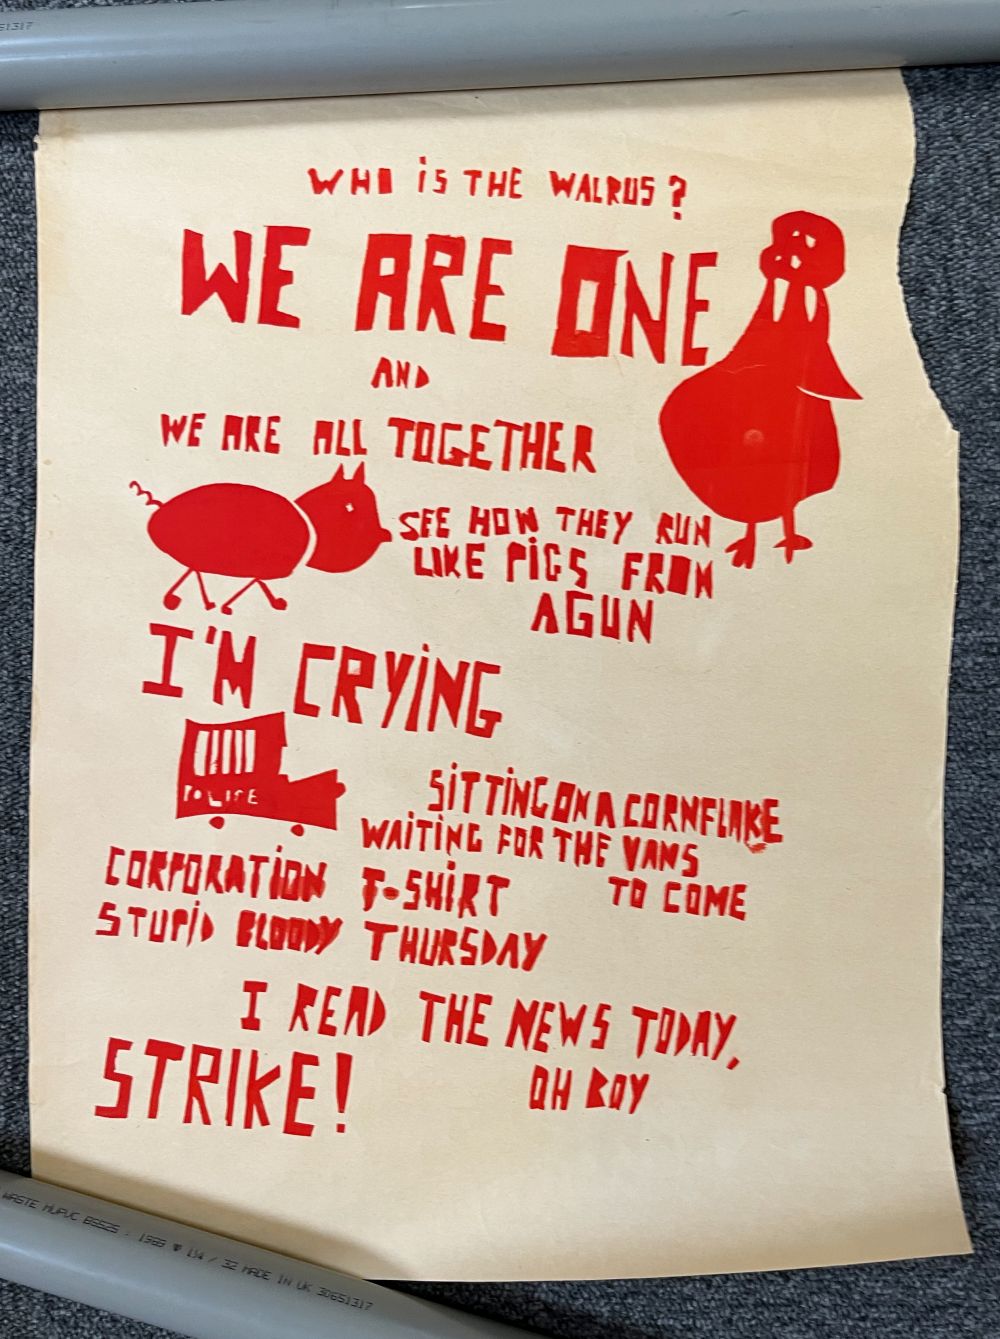 51317
WHO iS THE WALRUS?
WE ARE ONE
AND
WE ARE ALL TOGETHER
SEE HOW THEY RUN
LIKE PiGS FROM
A GUN
I'M CRYiNG
POLICE
SiTTiNG ON A CORNFLAKE
WAiTiNG FOR THE VANS
TO COME
CORPORATiON T-SHiRT
STUPiD BLOODY THURSDAY
I READ THE NEWS TODAY,
OH BOY
STRIKE!
WASTE MUPVC BS525 : 1989 1¼ / 32 MADE IN UK 30651317